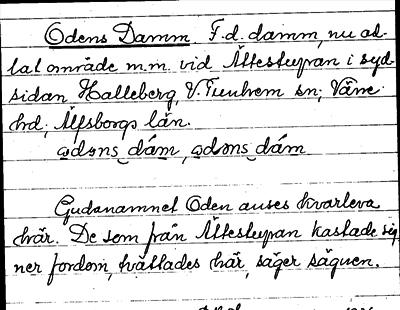 Odens Damm. F.d. damm, nu od-
lat område m.m. vid Ättestupan i syd-
sidan Halleberg, V. Tunhem sn; Väne
hd; Älfsborgs län.
ɷdəns dám, ɷdəns dám
Gudanamnet Oden anses kvarleva
här. De som från Ättestupan kastade sig
ner fordom, tvättades här, säger sägnen.